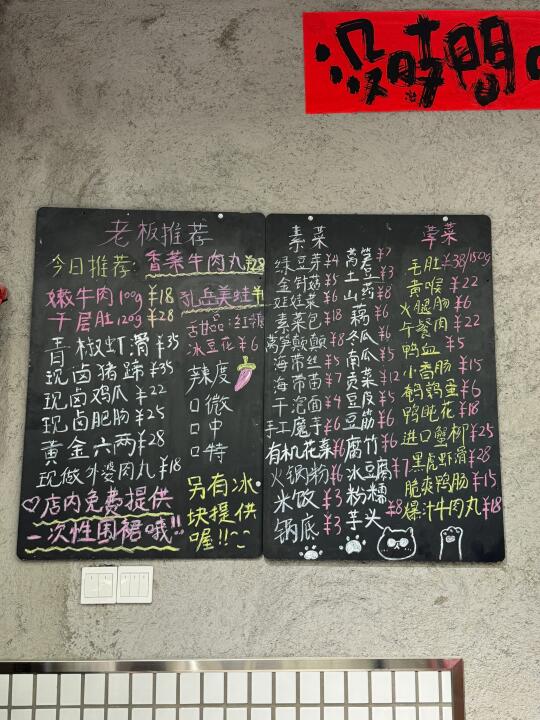 没时間
老板推荐
今日推荐 香菜牛肉丸 ¥28
嫩牛肉 100g ¥18
千层肚 120g ¥28
青椒虾滑 ¥35
现卤猪蹄 ¥35
现卤鸡爪 ¥22
现卤肥肠 ¥25
黄金六两 ¥28
现做外婆肉丸 ¥18
♡店内免费提供
一次性围裙哦!!
美蛙
甜品:红糖
冰豆花 ¥6
辣度
口微
口中
口特
另有冰
块提供
喔!!~~
素菜
绿豆芽 ¥4
金针菇 ¥5
娃娃菜 ¥6
素菜包 ¥18
莴笋颠颠 ¥8
海带丝 ¥5
海带苗 ¥7
干泡面 ¥4
手工魔芋 ¥6
有机花菜 ¥6
火锅粉 ¥6
米饭 ¥3
锅底 ¥3
莴笋 ¥7
土豆 ¥3
山药 ¥8
藕 ¥6
冬瓜 ¥5
南瓜 ¥5
贡菜 ¥12
豆皮 ¥5
豆筋 ¥6
腐竹 ¥6
冰豆腐 ¥7
粉糯
芋头 ¥8
荤菜
毛肚 ¥38/150g
黄喉 ¥22
火腿肠 ¥6
午餐肉 ¥22
鸭血 ¥5
小香肠 ¥15
鹌鹑蛋 ¥6
鸭肫花 ¥18
进口蟹柳 ¥25
黑虎虾滑 ¥28
脆爽鸭肠 ¥15
爆汁牛肉丸 ¥18